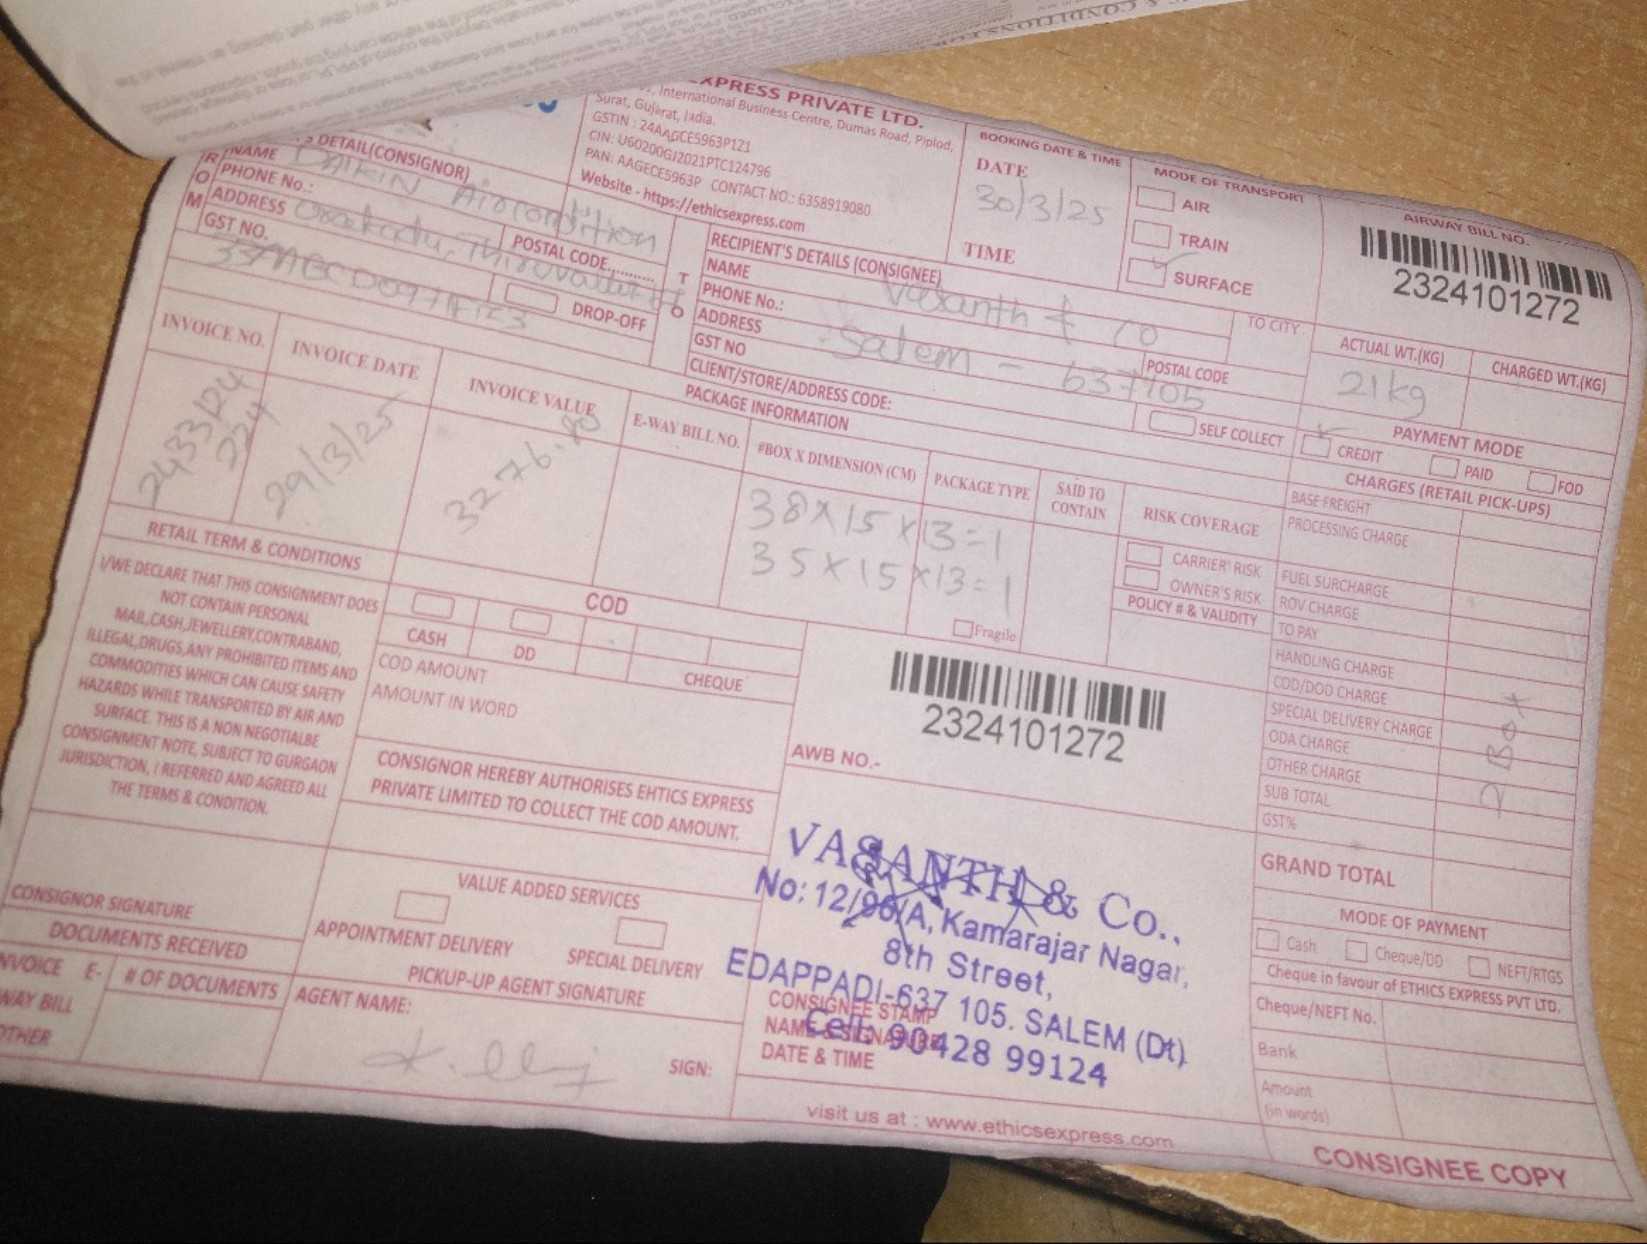 & CONDITIONS
XPRESS PRIVATE LTD.
International Business Centre, Dumas Road, Piplod,
Surat, Gujarat, India.
GSTIN : 24AAGCE5963P121
CIN: U60200GJ2021PTC124796
PAN: AAGECE5963P CONTACT NO.: 6358919080
Website - https://ethicsexpress.com
BOOKING DATE & TIME
DATE
30/3/25
TIME
MODE OF TRANSPORT
AIR
TRAIN
SURFACE
AIRWAY BILL NO.
2324101272
DETAIL(CONSIGNOR)
ROM
NAME DAIKIN Aircondition
PHONE No.:
ADDRESS
POSTAL CODE...........
GST NO.
DROP-OFF
TO
RECIPIENT'S DETAILS (CONSIGNEE)
NAME Vasanth & Co
PHONE No.:
ADDRESS Salem - 637105
GST NO
POSTAL CODE
TO CITY
CLIENT/STORE/ADDRESS CODE:
SELF COLLECT
ACTUAL WT.(KG)
21kg
CHARGED WT.(KG)
PAYMENT MODE
CREDIT
PAID
FOD
INVOICE NO.
2433124
224
INVOICE DATE
29/3/25
INVOICE VALUE
3276.80
PACKAGE INFORMATION
E-WAY BILL NO.
#BOX X DIMENSION (CM)
38x15x13=1
35x15x13=1
PACKAGE TYPE
Fragile
SAID TO
CONTAIN
RISK COVERAGE
CARRIER' RISK
OWNER'S RISK
POLICY # & VALIDITY
CHARGES (RETAIL PICK-UPS)
BASE FREIGHT
PROCESSING CHARGE
FUEL SURCHARGE
ROV CHARGE
TO PAY
HANDLING CHARGE
COD/DOD CHARGE
SPECIAL DELIVERY CHARGE
ODA CHARGE
OTHER CHARGE
SUB TOTAL
GST%
GRAND TOTAL
2 Box
RETAIL TERM & CONDITIONS
I/WE DECLARE THAT THIS CONSIGNMENT DOES
NOT CONTAIN PERSONAL
MAIL,CASH,JEWELLERY,CONTRABAND,
ILLEGAL,DRUGS,ANY PROHIBITED ITEMS AND
COMMODITIES WHICH CAN CAUSE SAFETY
HAZARDS WHILE TRANSPORTED BY AIR AND
SURFACE. THIS IS A NON NEGOTIALBE
CONSIGNMENT NOTE, SUBJECT TO GURGAON
JURISDICTION, I REFERRED AND AGREED ALL
THE TERMS & CONDITION.
CONSIGNOR SIGNATURE
COD
CASH
DD
CHEQUE
COD AMOUNT
AMOUNT IN WORD
CONSIGNOR HEREBY AUTHORISES EHTICS EXPRESS
PRIVATE LIMITED TO COLLECT THE COD AMOUNT.
VALUE ADDED SERVICES
APPOINTMENT DELIVERY
SPECIAL DELIVERY
PICKUP-UP AGENT SIGNATURE
AGENT NAME:
SIGN:
DOCUMENTS RECEIVED
INVOICE E-
WAY BILL
OTHER
# OF DOCUMENTS
2324101272
AWB NO.-
VASANTH & Co.,
No: 12/96/A, Kamarajar Nagar,
8th Street,
EDAPPADI-637 105. SALEM (Dt)
Cell: 90428 99124
CONSIGNEE STAMP
NAME & SIGNATURE
DATE & TIME
MODE OF PAYMENT
Cash
Cheque/DD
NEFT/RTGS
Cheque in favour of ETHICS EXPRESS PVT LTD.
Cheque/NEFT No.
Bank
Amount
(in words)
visit us at : www.ethicsexpress.com
CONSIGNEE COPY